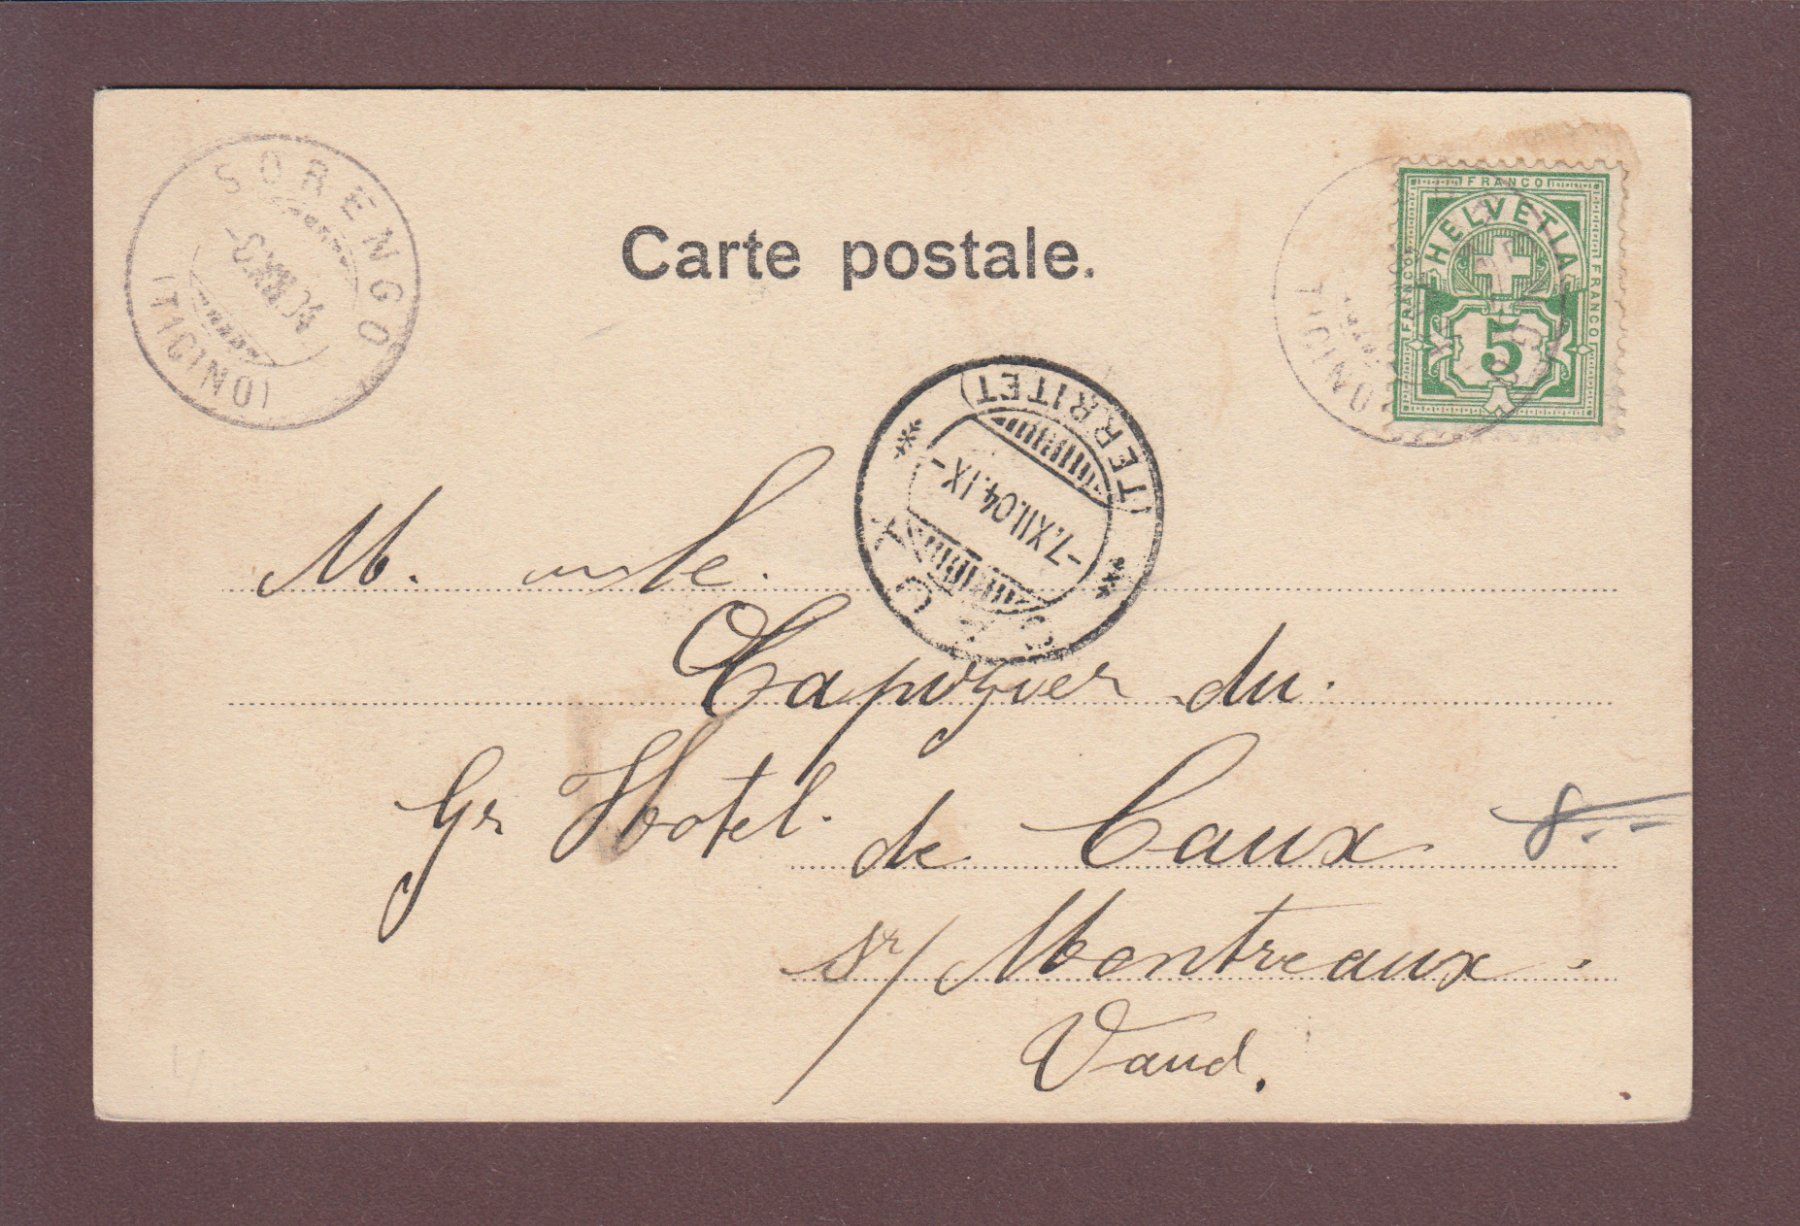 SORENGO
(TICINO)
XII.04
Carte postale.
FRANCO
HELVETIA
FRANCO
FRANCO
5
TICINO
(TERRITET)
-7.XII.04.IX-
M. le.
du.
Gr Hotel.
de Caux
sr/ Montreaux.
Vaud.